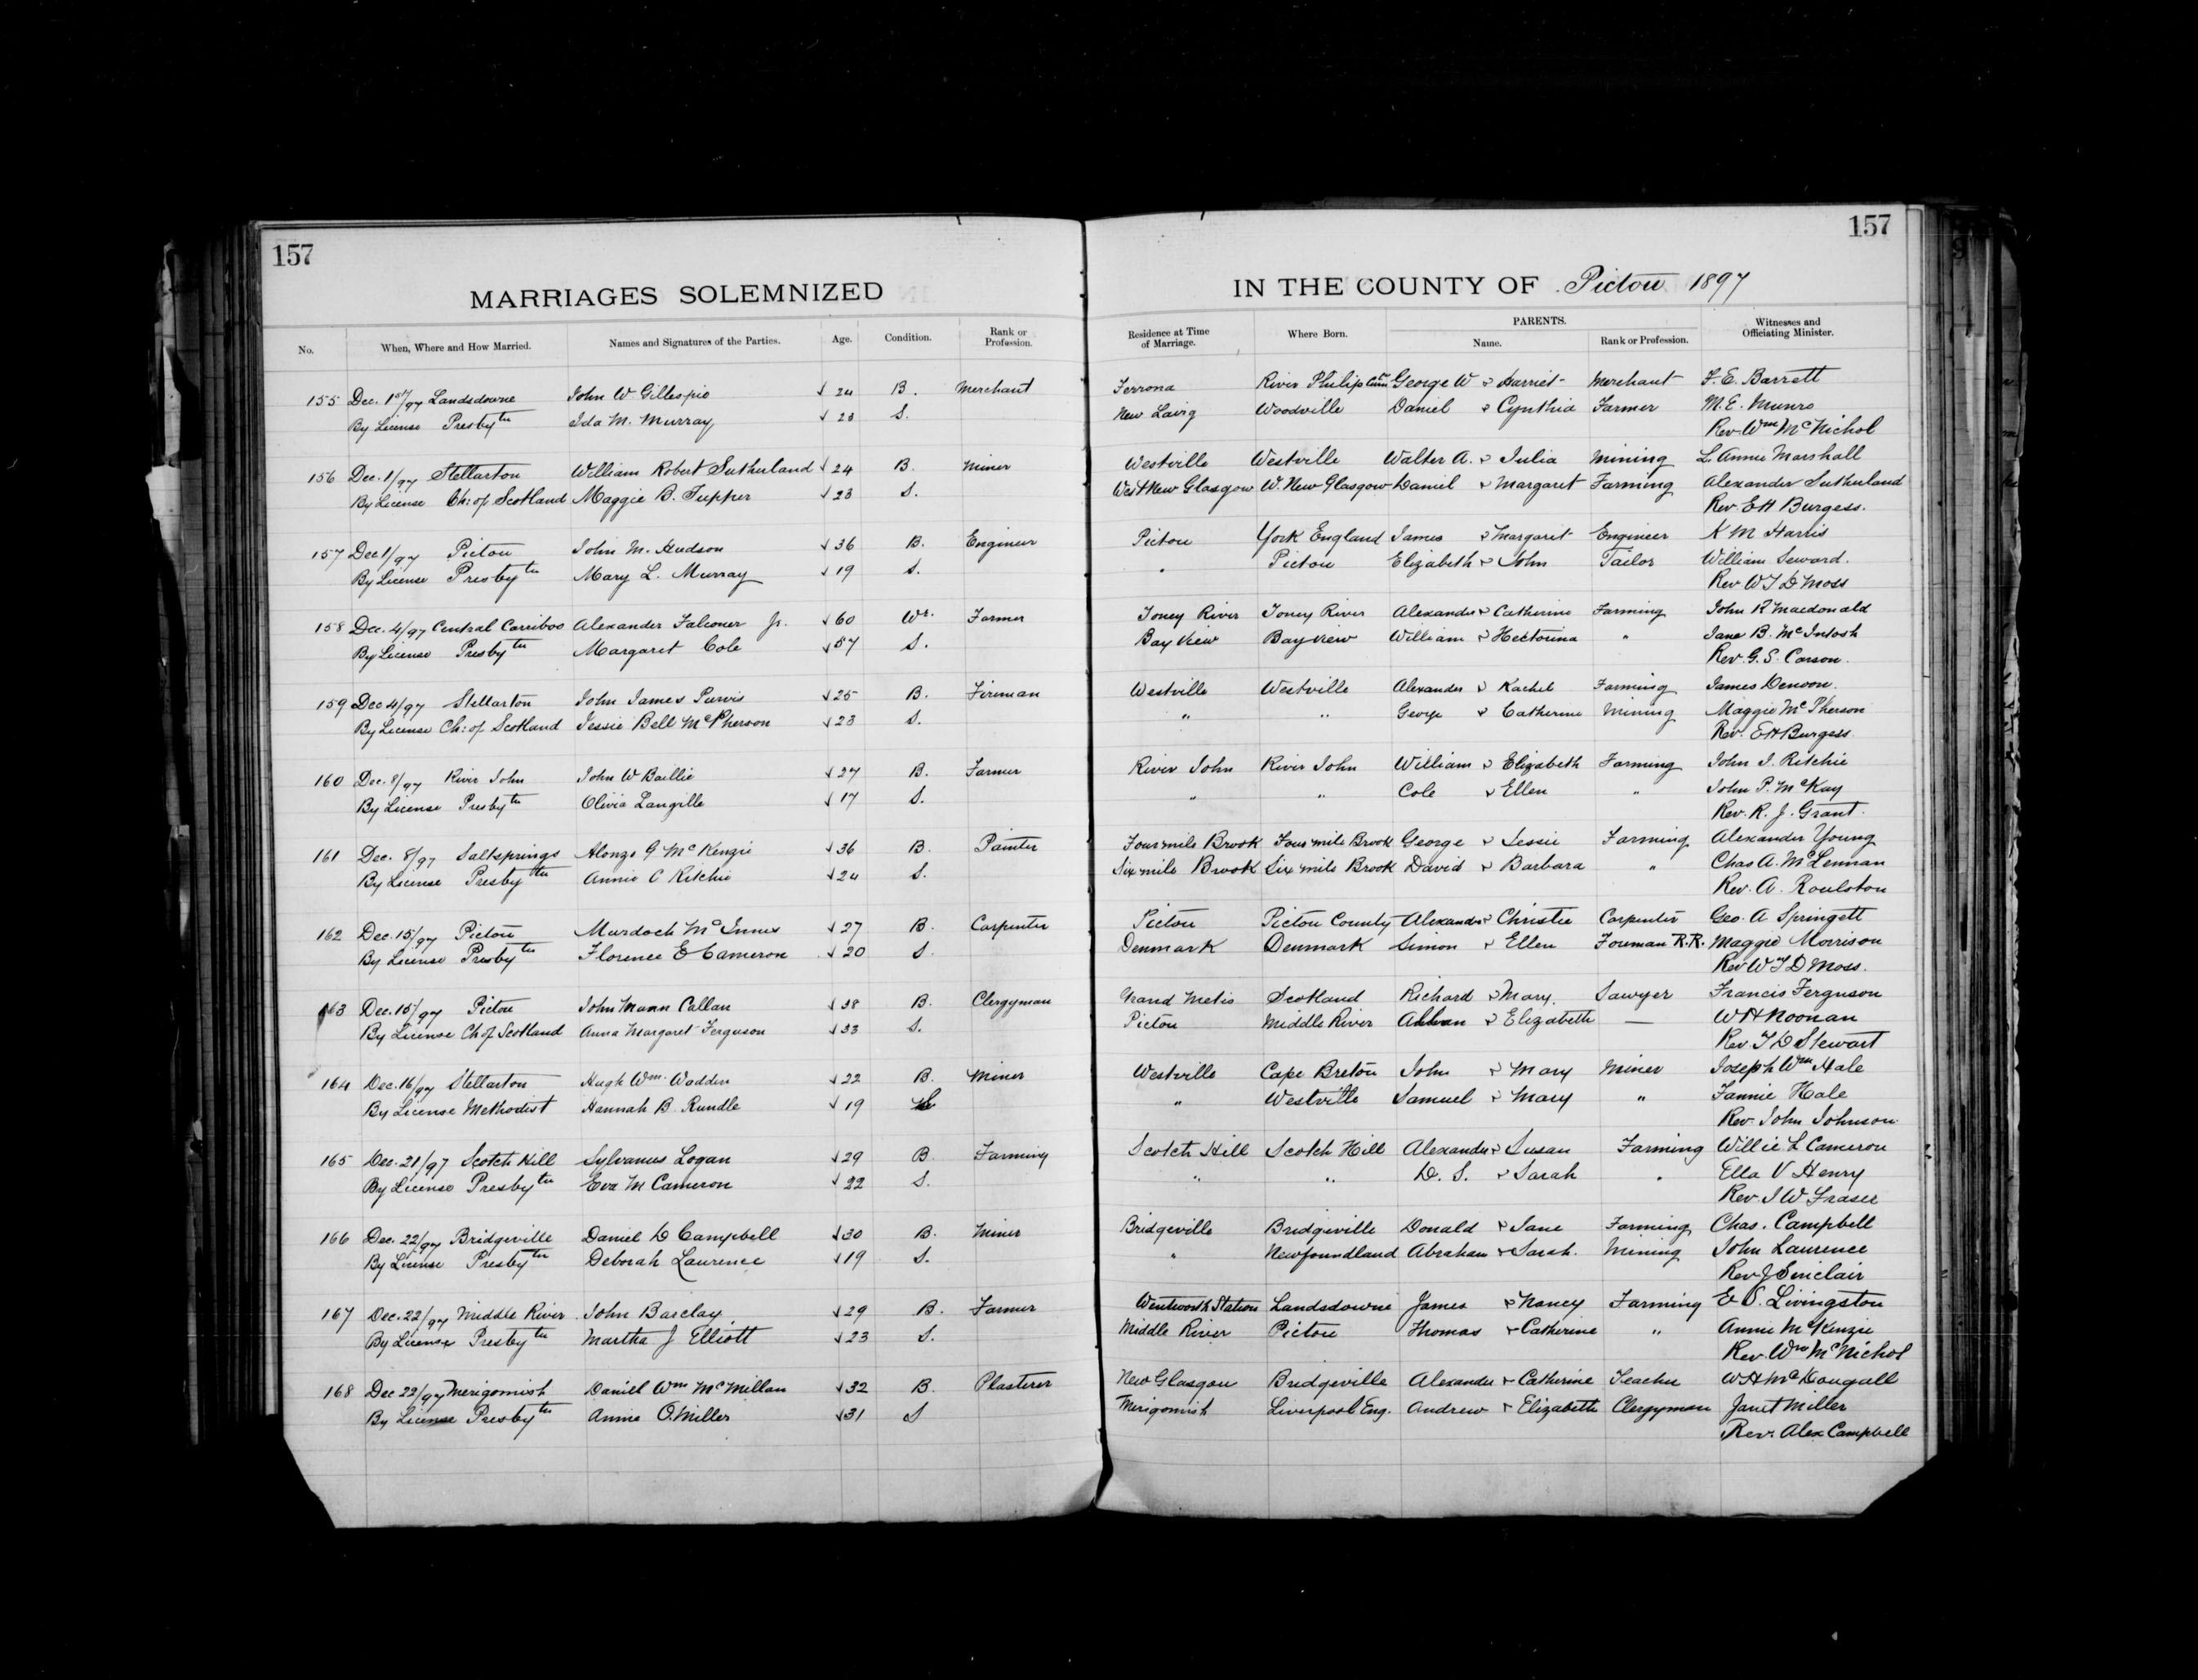 157
157
MARRIAGES SOLEMNIZED IN THE COUNTY OF Pictou 1897
No. When, Where and How Married. Names and Signatures of the Parties. Age. Condition. Rank or Profession. Residence at Time of Marriage. Where Born. PARENTS. Name. Rank or Profession. Witnesses and Officiating Minister.
155 Dec. 1st/97 Landsdowne John W Gillespie 24 B. Merchant Ferrona River Philip Cum George W & Harriet Merchant F. E. Barrett
By License Presbytn Ida M. Murray 23 S. New Lairg Woodville Daniel & Cynthia Farmer M. E. Munro
Rev. Wm McNichol
156 Dec. 1/97 Stellarton William Robert Sutherland 24 B. Miner Westville Westville Walter A. & Julia Mining L. Annie Marshall
By License Ch: of Scotland Maggie B. Tupper 23 S. West New Glasgow W. New Glasgow Daniel & Margaret Farming Alexander Sutherland
Rev. E H Burgess.
157 Dec 1/97 Pictou John M. Hudson 36 B. Engineer Pictou York England James & Margaret Engineer K M Harris
By License Presbytn Mary L. Murray 19 S. " Pictou Elizabeth & John Tailor William Seward.
Rev W T D Moss
158 Dec. 4/97 Central Carriboo Alexander Falconer Jr. 60 Wr. Farmer Toney River Toney River Alexander & Catherine Farming John R Macdonald
By License Presbytn Margaret Cole 57 S. Bay View Bay view William & Hectorina " Jane B. McIntosh
Rev. G. S. Carson.
159 Dec 4/97 Stellarton John James Purvis 25 B. Fireman Westville Westville Alexander & Rachel Farming James Denoon.
By License Ch: of Scotland Jessie Bell McPherson 23 S. " " George & Catherine Mining Maggie McPherson
Rev. E H Burgess
160 Dec. 8/97 River John John W Baillie 27 B. Farmer River John River John William & Elizabeth Farming John J. Ritchie
By License Presbytn Olivia Langille 17 S. " " Cole & Ellen " John P. McKay
Rev. R. J. Grant.
161 Dec. 8/97 Saltsprings Alonzo G McKenzie 36 B. Painter Four mile Brook Four mile Brook George & Jessie Farming Alexander Young
By License Presbytn Annie C Ritchie 24 S. Six mile Brook Six mile Brook David & Barbara " Chas A. McLennan
Rev. A. Roulston
162 Dec. 15/97 Pictou Murdoch McInnes 27 B. Carpenter Pictou Pictou County Alexander & Christie Carpenter Geo. A Springett
By License Presbytn Florence E Cameron 20 S Denmark Denmark Simon & Ellen Foreman R.R. Maggie Morrison
Rev W T D Moss.
163 Dec. 15/97 Pictou John Mann Callan 38 B. Clergyman Grand Metis Scotland Richard & Mary. Sawyer Francis Ferguson
By License Ch of Scotland Anna Margaret Ferguson 33 S. Pictou Middle River & Elizabeth — W H Noonan
Rev. T D Stewart
164 Dec. 16/97 Stellarton Hugh Wm. Wadden 22 B. Miner Westville Cape Breton John & Mary Miner Joseph Wm Hale
By License Methodist Hannah B. Rundle 19 S " Westville Samuel & Mary " Fannie Hale
Rev. John Johnson
165 Dec. 21/97 Scotch Hill Sylvanus Logan 29 B. Farming Scotch Hill Scotch Hill Alexander & Susan Farming Willie L Cameron
By License Presbytn Eva M Cameron 22 S. " " D. S. & Sarah " Ella V Henry
Rev. J W Fraser
166 Dec. 22/97 Bridgeville Daniel D Campbell 30 B. Miner Bridgeville Bridgeville Donald & Jane Farming Chas. Campbell
By License Presbytn Deborah Laurence 19 S. " Newfoundland Abraham & Sarah. Mining John Laurence
Rev J Sinclair
167 Dec. 22/97 Middle River John Barclay 29 B. Farmer Wentworth Station Landsdowne James & Nancy Farming Livingston
By License Presbytn Martha J Elliott 23 S. Middle River Pictou Thomas & Catherine " Annie McKenzie
Rev. Wm McNichol
168 Dec 22/97 Merigomish Daniel Wm McMillan 32 B. Plasterer New Glasgow Bridgeville Alexander & Catherine Teacher W H McDougall
By License Presbytn Annie O. Miller 31 S Merigomish Liverpool Eng. Andrew & Elizabeth Clergyman Janet Miller
Rev. Alex Campbell